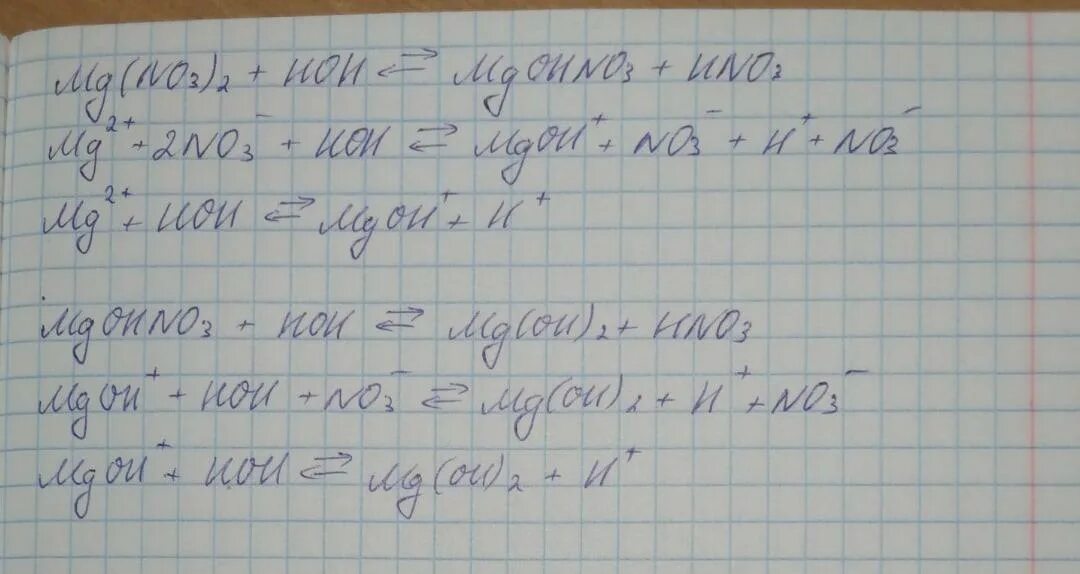 Mg(NO3)2 + HOH ⇄ MgOHNO3 + HNO3
Mg²⁺ + 2NO3⁻ + HOH ⇄ MgOH⁺ + NO3⁻ + H⁺ + NO3⁻
Mg²⁺ + HOH ⇄ MgOH⁺ + H⁺
MgOHNO3 + HOH ⇄ Mg(OH)2 + HNO3
MgOH⁺ + HOH + NO3⁻ ⇄ Mg(OH)2 + H⁺ + NO3⁻
MgOH⁺ + HOH ⇄ Mg(OH)2 + H⁺